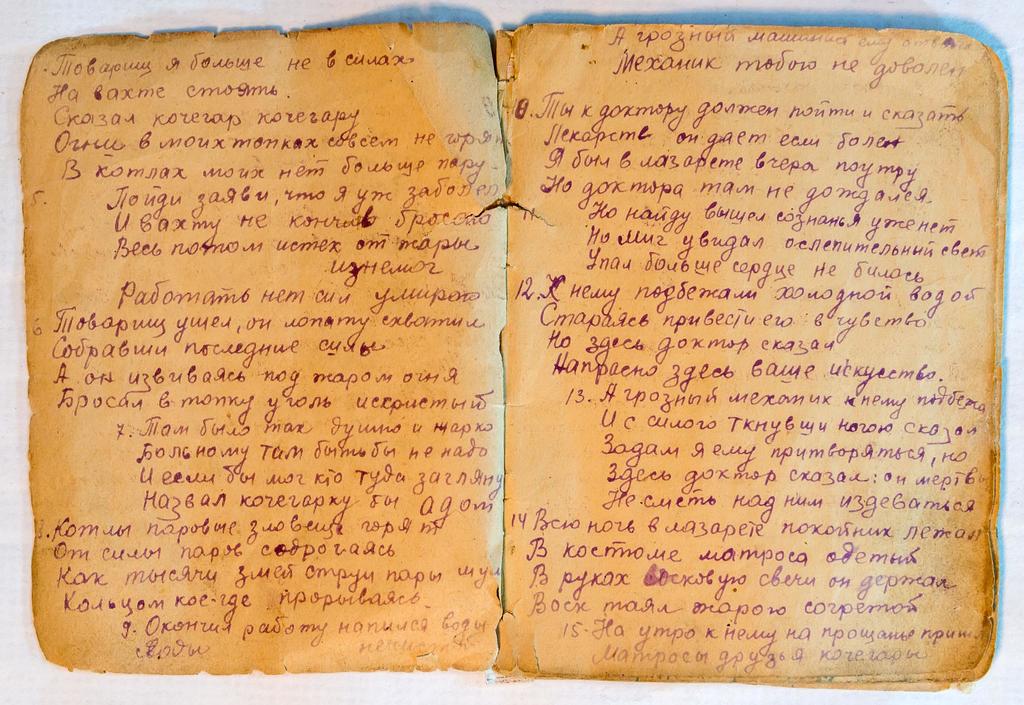 Товарищ я больше не в силах
На вахте стоять.
Сказал кочегар кочегару
Огни в моих топках совсем не горят
В котлах моих нет больше пару
5. Пойди заяви, что я уж заболел
И вахту не кончив бросаю
Весь потом истек от жары
изнемог
Работать нет сил умираю
6 Товарищ ушел, он лопату схватил
Собравши последние силы
А он извиваясь под жаром огня
Бросал в топку уголь искристый
7. Там было так душно и жарко
Больному там быть бы не надо
И если бы мог кто туда заглянул
Назвал кочегарку бы адом
8. Котлы паровые зловеще горят
От силы паров содрогаясь
Как тысячи змей струи пары шум
Кольцом кое-где прорываясь
9. Окончил работу напился воды
Воды
А грозный машина ему
Механик тобою не доволен
Ты к доктору должен пойти и сказать
Лекарств он дает если болен
Я был в лазарете вчера поутру
Но доктора там не дождался.
11 Но найду вышел сознанья уже нет
На миг увидал ослепительный свет
Упал больше сердце не билось
12. К нему подбежали холодной водой
Стараясь привести его в чувство
Но здесь доктор сказал
Напрасно здесь ваше искусство.
13. А грозный механик к нему подбежа
И с силою ткнувши ногою сказал
Задам я ему притворяться, но
Здесь доктор сказал: он мертвы
Не сметь над ним издеваться
14 Всю ночь в лазарете покойник лежал
В костюме матроса одетый
В руках восковую свечи он держал
Воск таял жарою согретой
15. На утро к нему на прощанье пришл
Матросы друзья кочегары